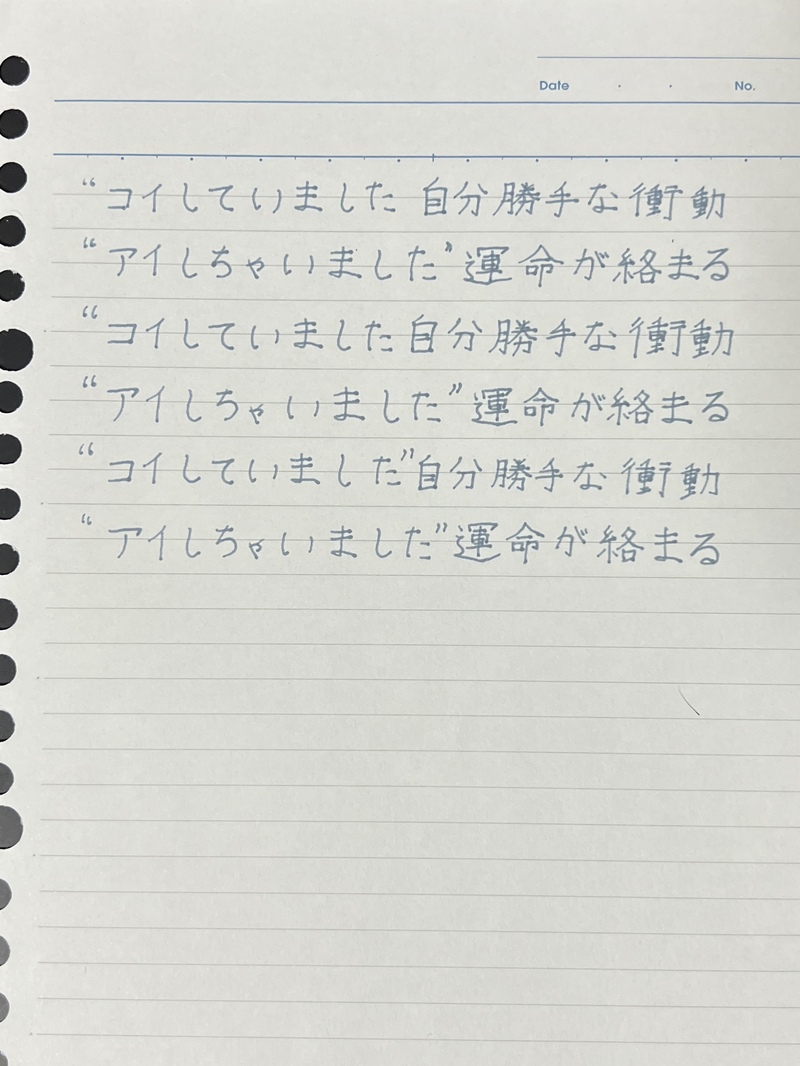 Date ・ ・ No.
“コイしていました 自分勝手な衝動
“アイしちゃいました”運命が絡まる
“コイしていました 自分勝手な衝動
“アイしちゃいました”運命が絡まる
“コイしていました”自分勝手な衝動
“アイしちゃいました”運命が絡まる